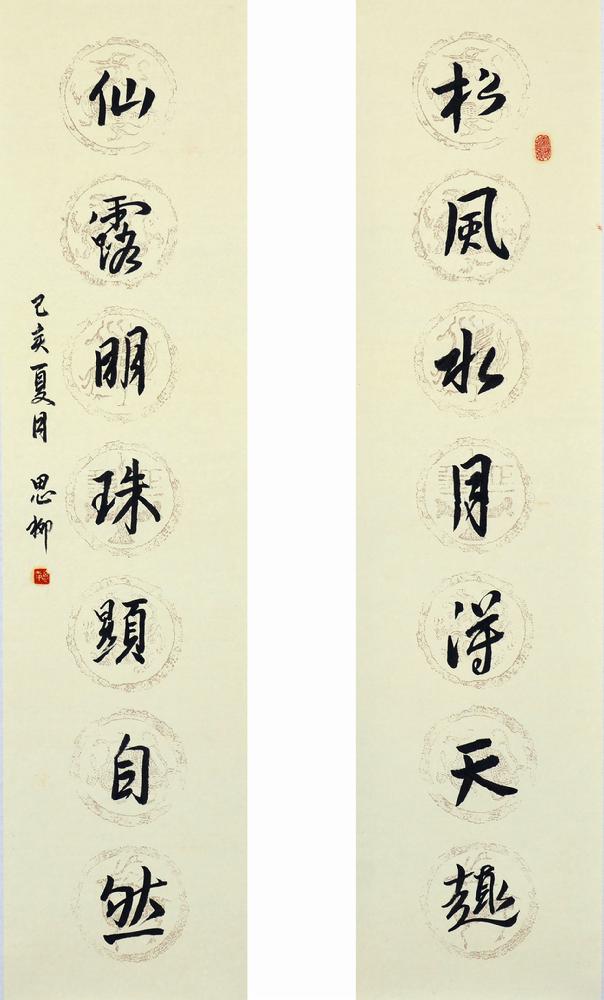 松風水月得天趣
仙露明珠顯自然
己亥夏月 思柳